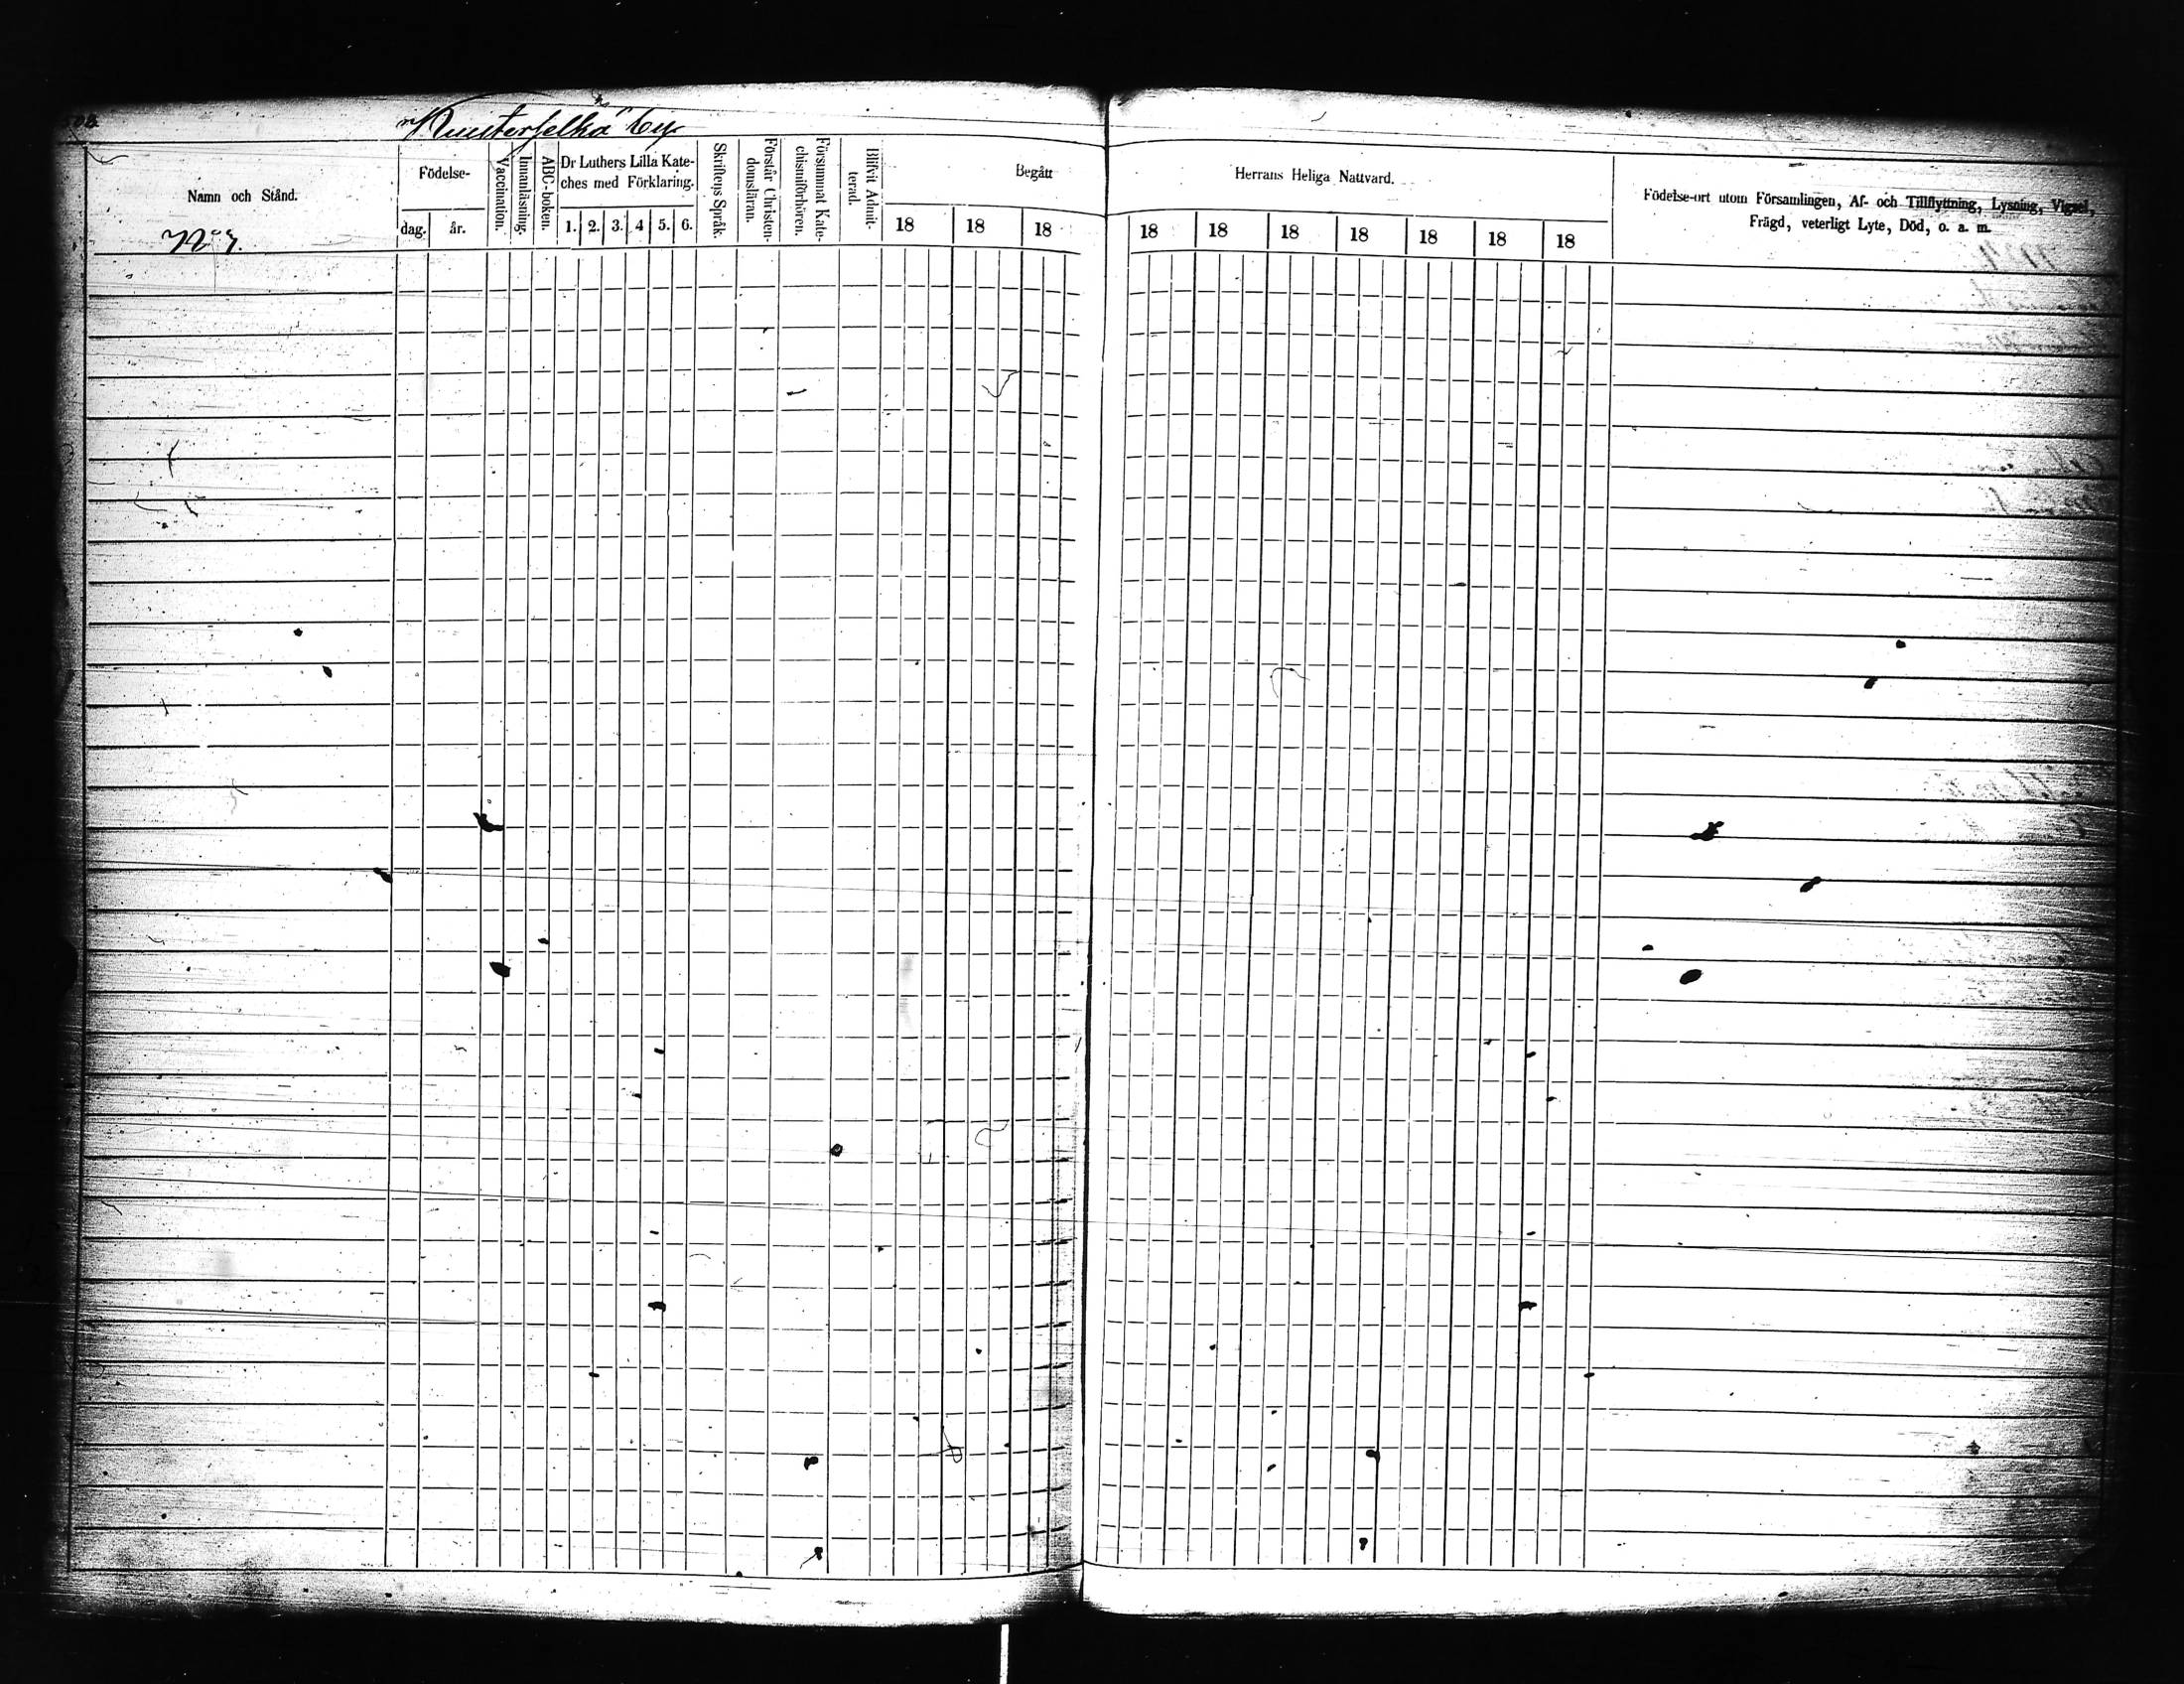 Kuusterselkä by
Namn och Stånd.
Födelse-
dag.
år.
Vaccination.
Innanläsning.
ABC-boken.
Dr Luthers Lilla Kate-
ches med Förklaring.
1. 2. 3. 4 5. 6.
Skriftens Språk.
Förstår Christen-
domsläran.
Försummat Kate-
chismiförhören.
Blifvit Admit-
terad.
Begått
18 18 18
Herrans Heliga Nattvard.
18 18 18 18 18 18 18
Födelse-ort utom Församlingen, Af- och Tillflyttning, Lysning, Vigsel,
Frägd, veterligt Lyte, Död, o. a. m.